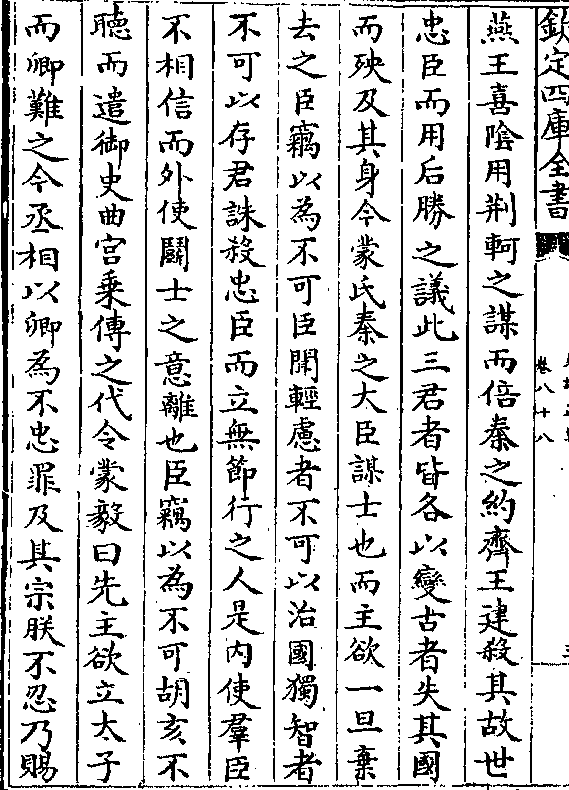 欽定四庫全書
卷八十八
燕王喜陰用荆軻之謀而倍秦之約齊王建殺其故世
忠臣而用后勝之議此三君者皆各以變古者失其國
而殃及其身今蒙氏秦之大臣謀士也而主欲一旦棄
去之臣竊以為不可臣聞輕慮者不可以治國獨智者
不可以存君誅殺忠臣而立無節行之人是内使羣臣
不相信而外使鬭士之意離也臣竊以為不可胡亥不
聽而遣御史曲宮乗傳之代令蒙毅曰先主欲立太子
而卿難之今丞相以卿為不忠罪及其宗朕不忍乃賜